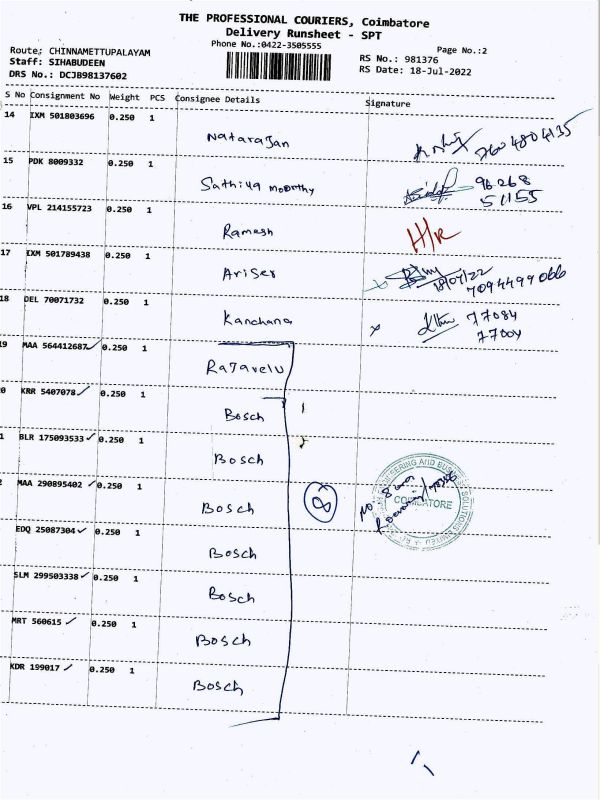 THE PROFESSIONAL COURIERS, Coimbatore
Delivery Runsheet - SPT
Phone No.:0422-3505555
Page No.:2
Route: CHINNAMETTUPALAYAM
Staff: SIHABUDEEN
DRS No.: DCJB98137602
RS No.: 981376
RS Date: 18-Jul-2022
S No Consignment No Weight PCS Consignee Details Signature
14 IXM 501803696 0.250 1 Natarajan
15 PDK 8009332 0.250 1 Sathiya moorthy 96268
51155
16 VPL 214155723 0.250 1 Ramesh H/R
17 IXM 501789438 0.250 1 Ariser
18/07/22
7094499066
18 DEL 70071732 0.250 1 Kanchana 77084
77004
9 MAA 564412687 ✓ 0.250 1 Rajavelu
0 KRR 5407078 ✓ 0.250 1 Bosch 1
1 BLR 175093533 ✓ 0.250 1 Bosch 2
MAA 290895402 ✓ 0.250 1 Bosch
8
COIMBATORE
EDQ 25087304 ✓ 0.250 1 Bosch
SLM 299503338 ✓ 0.250 1 Bosch
MRT 560615 ✓ 0.250 1 Bosch
KDR 199017 ✓ 0.250 1 Bosch